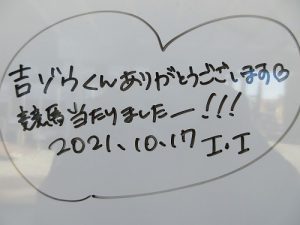 吉ゾウくんありがとうございます☺
競馬当たりましたー!!!
2021.10.17 I.I